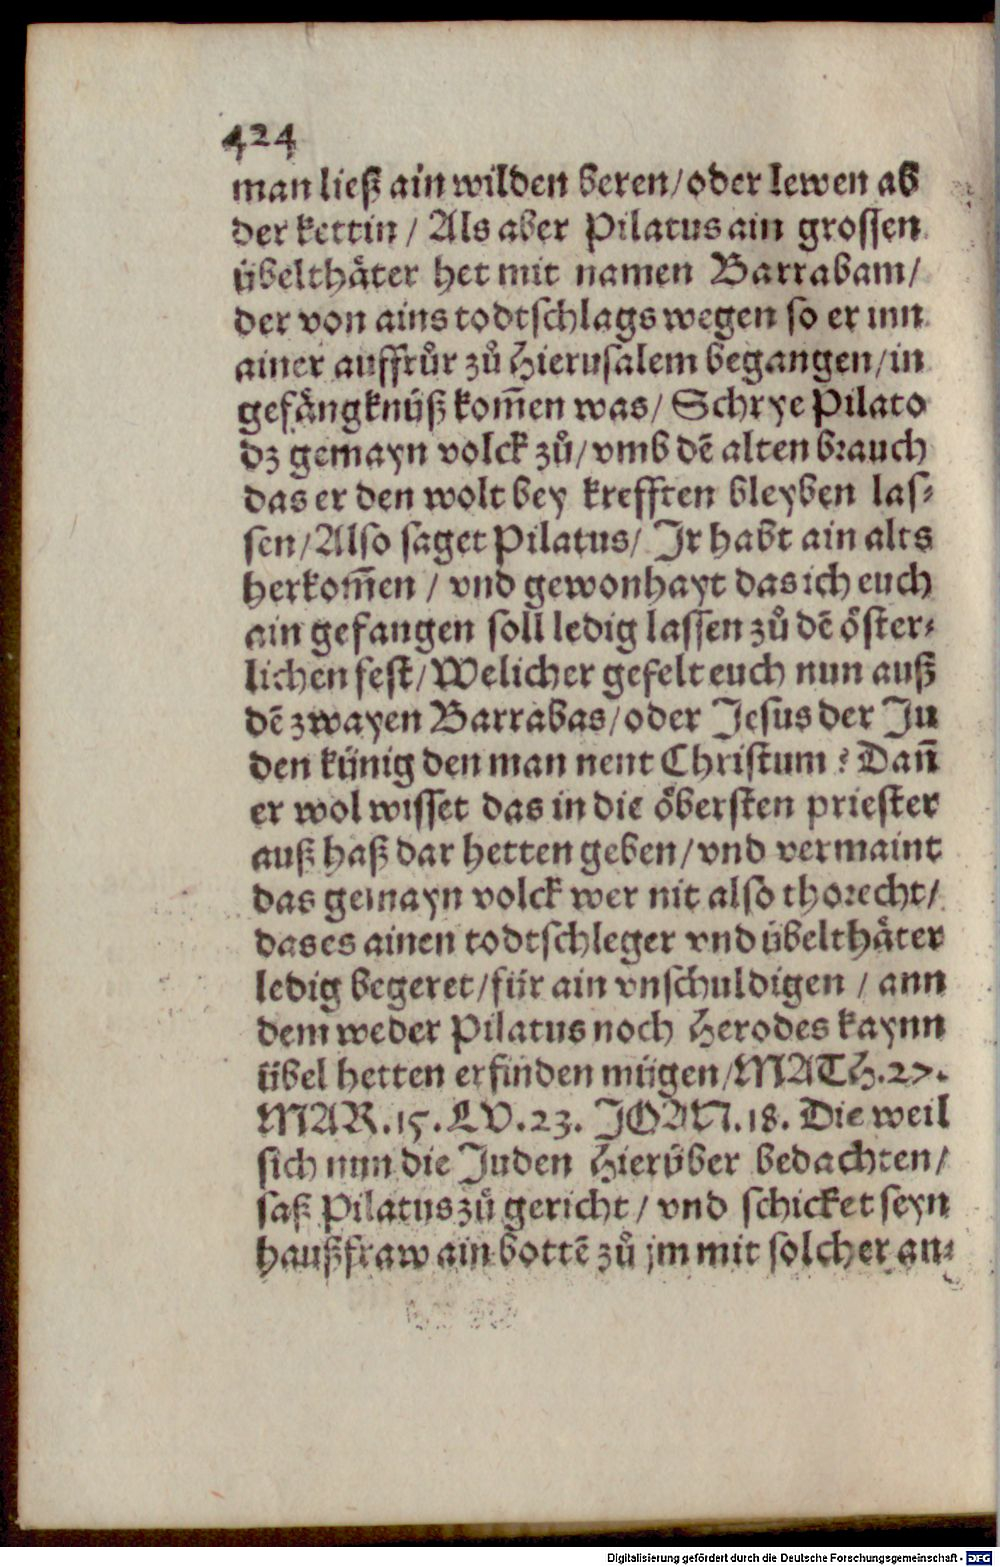 424
man ließ ain wilden beren/oder lewen ab
der kettin / Als aber Pilatus ain grossen
übelthäter het mit namen Barrabam/
der von ains todtschlags wegen so er inn
ainer auffrůr zů Hierusalem begangen/in
gefängknüß kom̃en was/ Schrye Pilato
dz gemayn volck zů/vmb dẽ alten brauch
das er den wolt bey krefften bleyben las⸗
sen/Also saget Pilatus/ Ir habt ain alts
herkom̃en / vnd gewonhayt das ich euch
ain gefangen soll ledig lassen zů dẽ öster⸗
lichen fest/Welicher gefelt euch nun auß
dẽ zwayen Barrabas/oder Jesus der Ju
den künig den man nent Christum? Dañ
er wol wisset das in die öbersten priester
auß haß dar hetten geben/vnd vermaint
das gemayn volck wer nit also thorecht/
das es ainen todtschleger vnd übelthäter
ledig begeret/für ain vnschuldigen / ann
dem weder Pilatus noch Herodes kaynn
übel hetten erfinden mügen/MATH.27.
MAR.15.LV.23. JOAN.18. Die weil
sich nun die Juden hierüber bedachten/
saß Pilatus zů gericht / vnd schicket seyn
haußfraw ain bottẽ zů jm mit solcher an⸗
Digitalisierung gefördert durch die Deutsche Forschungsgemeinschaft - DFG